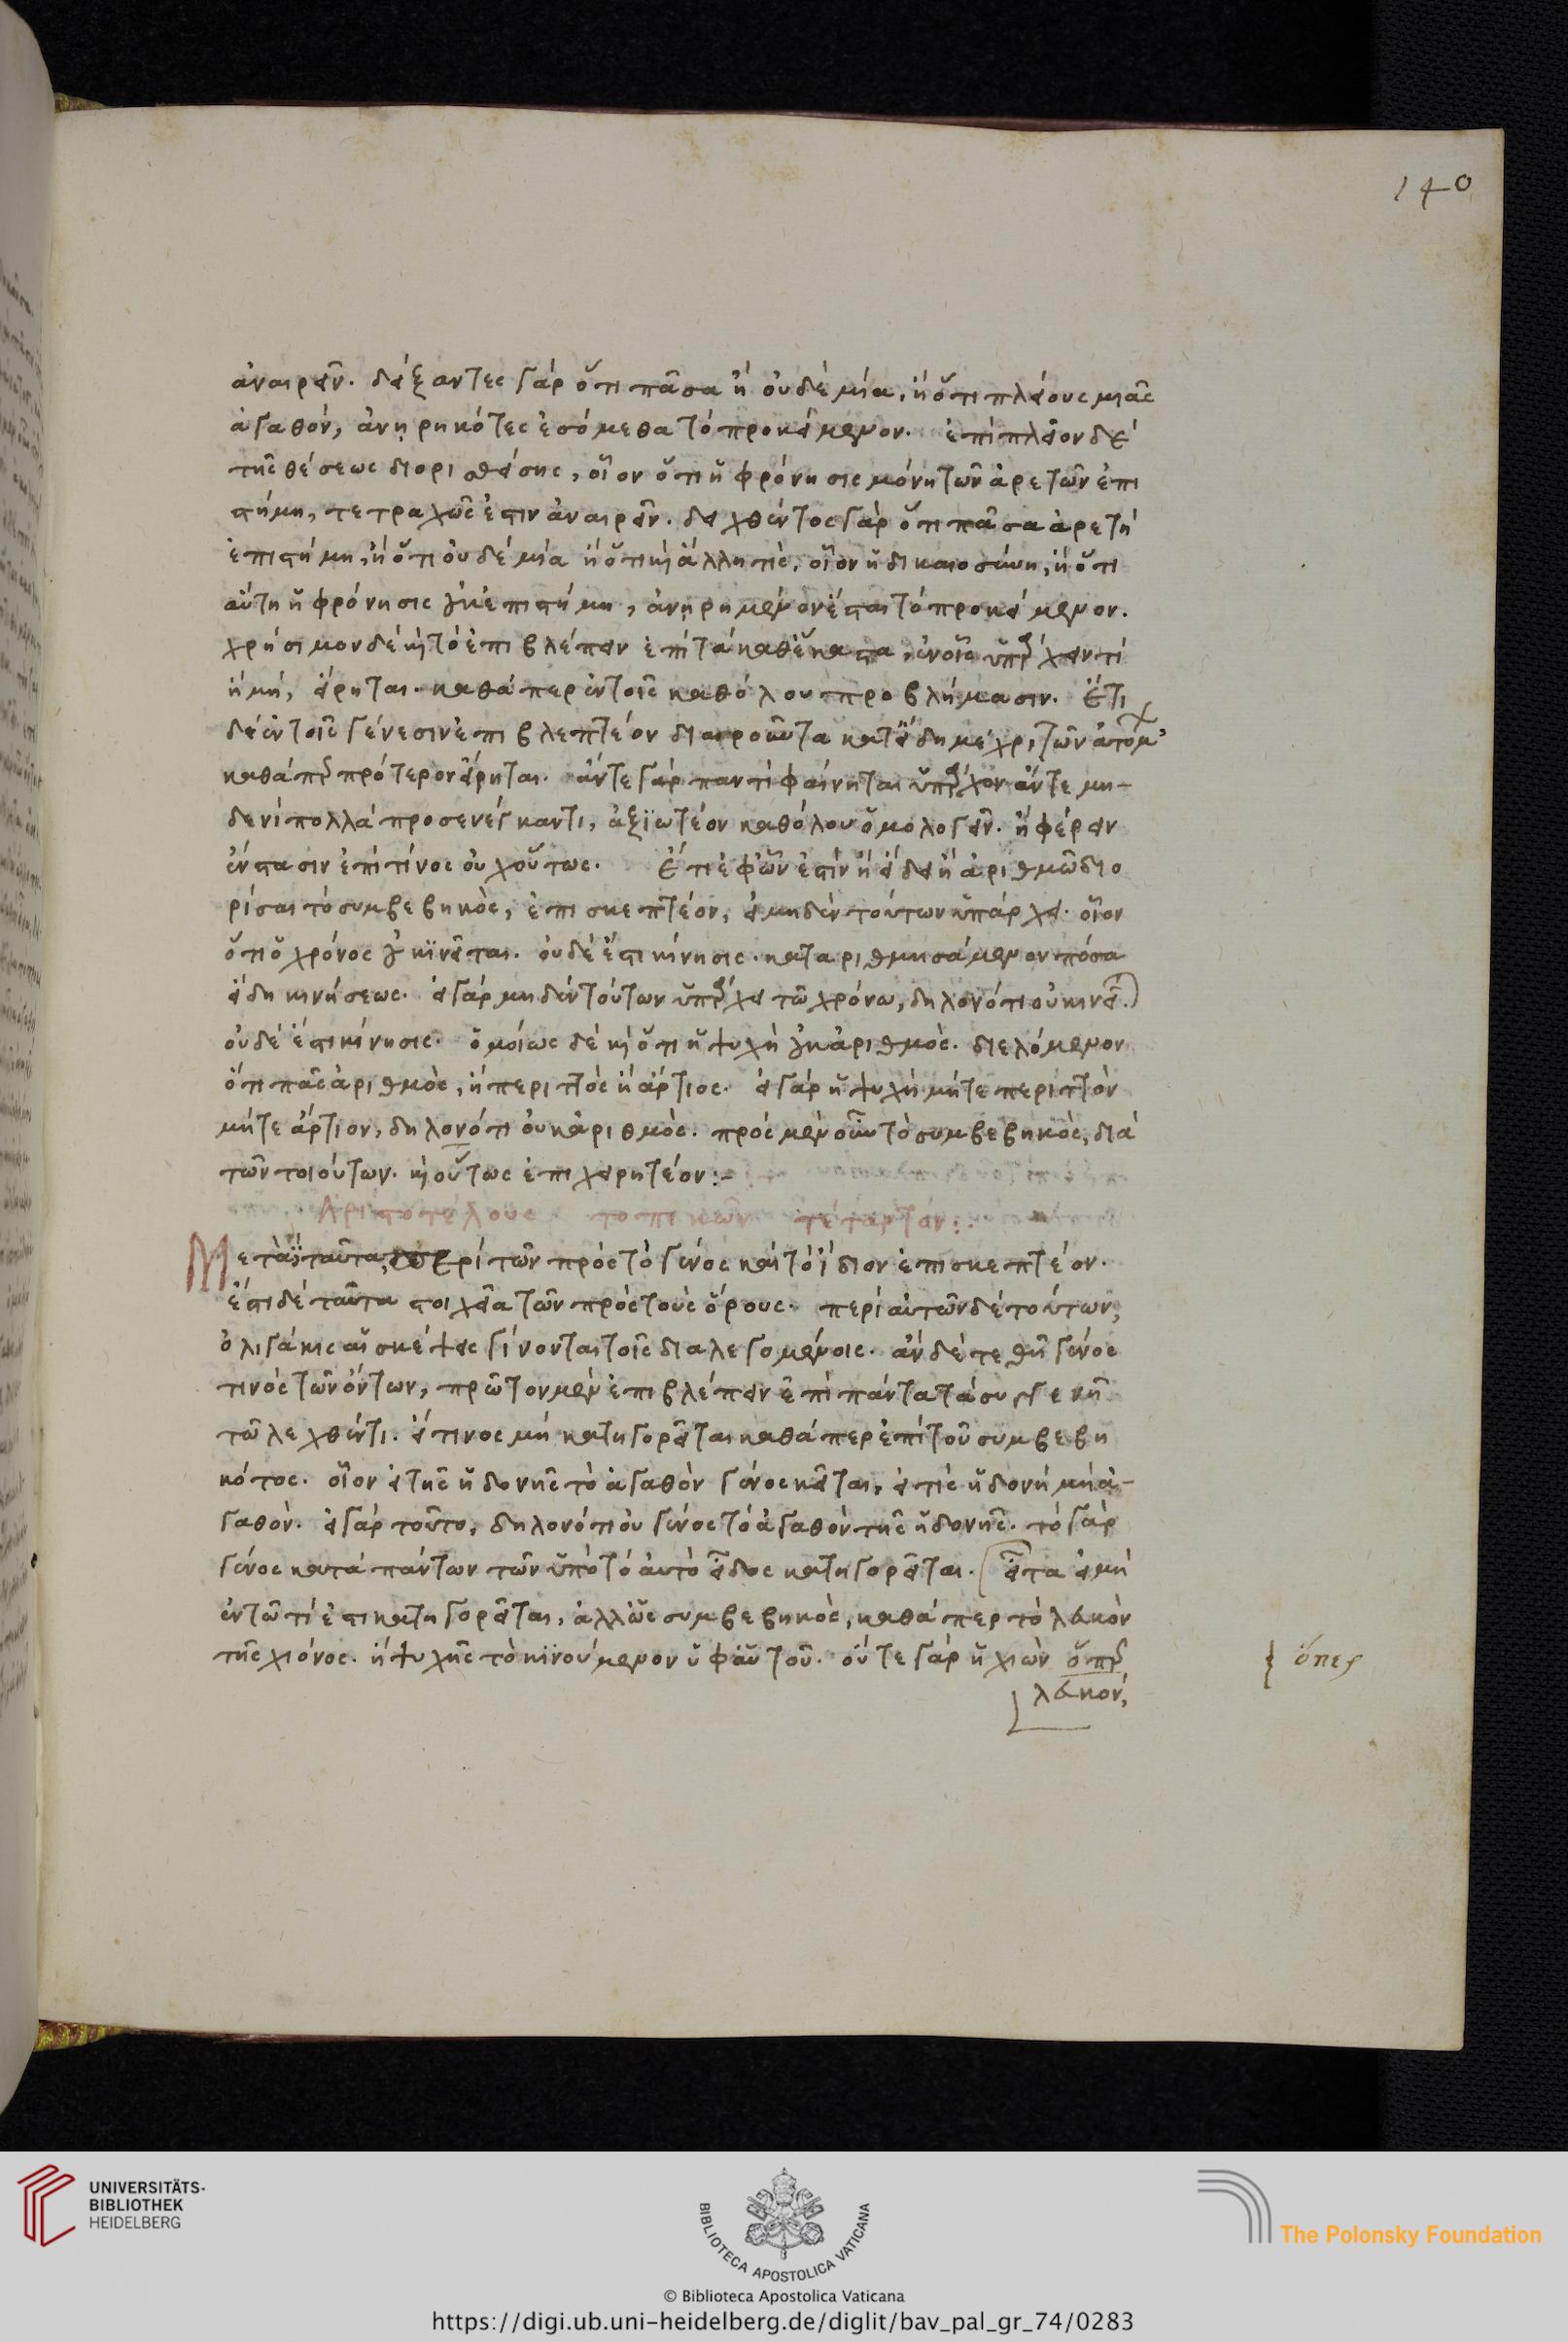 140
ἀναιρεῖν. δείξαντες γάρ ὅτι πᾶσα ἢ οὐδὲ μία, ἢ ὅτι πλείους μιᾶς
ἀγαθόν, ἀνῃρηκότες ἐσόμεθα τὸ προκείμενον. ἐπὶ πλεῖον δὲ
τῆς θέσεως διορισθείσης, οἷον ὅτι ἡ φρόνησις μόνη τῶν ἀρετῶν ἐπι
στήμη, τετραχῶς ἔστιν ἀναιρεῖν. δειχθέντος γὰρ ὅτι πᾶσα ἀρετὴ
ἐπιστήμη, ἢ ὅτι οὐδὲ μία ἢ ὅτι καὶ ἄλλη τὶς, οἷον ἡ δικαιοσύνη, ἢ ὅτι
αὕτη ἡ φρόνησις οὐκ ἐπιστήμη, ἀνῃρημένον ἔσται τὸ προκείμενον.
χρήσιμον δὲ καὶ τὸ ἐπιβλέπειν ἐπὶ τὰ καθ' ἕκαστα, ἐν οἷς ὑπάρχειν τὶ
ἢ μὴ, εἴρηται. καθάπερ ἐν τοῖς καθόλου προβλήμασιν. Ἔτι
δὲ ἐν τοῖς γένεσιν ἐπιβλεπτέον διαιροῦντα κατ' εἴδη μέχρι τῶν ἀτόμων
καθάπερ πρότερον εἴρηται. ἄν τε γὰρ παντὶ φαίνηται ὑπάρχον ἄν τε μη-
δενὶ πολλὰ προσενέγκαντι, ἀξιωτέον καθόλου ὁμολογεῖν. ἢ φέρειν
ἔνστασιν ἐπὶ τίνος οὐχ οὕτως. Ἔτι ἐφ' ὧν ἐστὶν ἢ εἴδει ἢ ἀριθμῷ διο
ρίσαι τὸ συμβεβηκὸς, ἐπισκεπτέον, εἰ μηδὲν τούτων ὑπάρχει. οἷον
ὅτι ὁ χρόνος οὐ κινεῖται. οὐδὲ ἔστι κίνησις. καταριθμησάμενον πόσα
εἴδη κινήσεως. εἰ γὰρ μηδὲν τούτων ὑπάρχει τῷ χρόνω, δηλονότι οὐ κινεῖται.
οὐδὲ ἔστι κίνησις. ὁμοίως δὲ καὶ ὅτι ἡ ψυχὴ οὐκ ἀριθμὸς. διελόμενον
ὅτι πᾶς ἀριθμὸς, ἢ περιττὸς ἢ ἄρτιος. εἰ γὰρ ἡ ψυχὴ μήτε περιττὸν
μήτε ἄρτιον, δηλονότι οὐκ ἀριθμὸς. πρὸς μὲν οὖν τὸ συμβεβηκὸς, διὰ
τῶν τοιούτων. καὶ οὕτως ἐπιχειρητέον:-
Ἀριστοτέλους τοπικῶν τέταρτον:
Μετὰ δὲ ταῦτα, περὶ τῶν πρὸς τὸ γένος καὶ τὸ ἴδιον ἐπισκεπτέον.
ἔστι δὲ ταῦτα στοιχεῖα τῶν πρὸς τοὺς ὅρους. περὶ αὐτῶν δὲ τούτων,
ὀλιγάκις αἱ σκέψεις γίνονται τοῖς διαλεγομένοις. ἂν δὲ τεθῇ γένος
τινὸς τῶν ὄντων, πρῶτον μὲν ἐπιβλέπειν ἐπὶ πάντα τὰ συγγενῆ
τῷ λεχθέντι. εἴ τινος μὴ κατηγορεῖται καθάπερ ἐπὶ τοῦ συμβεβη
κότος. οἷον εἰ τῆς ἡδονῆς τὸ ἀγαθὸν γένος κεῖται, εἰ τὶς ἡδονὴ μὴ ἀ-
γαθὸν. εἰ γὰρ τοῦτο, δηλονότι οὐ γένος τὸ ἀγαθὸν τῆς ἡδονῆς. τὸ γὰρ
γένος κατὰ πάντων τῶν ὑπὸ τὸ αὐτὸ εἶδος κατηγορεῖται. εἶτα εἰ μὴ
ἐν τῷ τί ἐστι κατηγορεῖται, ἀλλ' ὡς συμβεβηκὸς, καθάπερ τὸ λευκὸν
τῆς χιόνος. ἢ ψυχῆς τὸ κινούμενον ὑφ' αὑτοῦ. οὔτε γὰρ ἡ χιὼν ὅπερ
ὅπερ
λευκὸν,
UNIVERSITÄTS-
BIBLIOTHEK
HEIDELBERG
BIBLIOTECA APOSTOLICA VATICANA
The Polonsky Foundation
© Biblioteca Apostolica Vaticana
https://digi.ub.uni-heidelberg.de/diglit/bav_pal_gr_74/0283